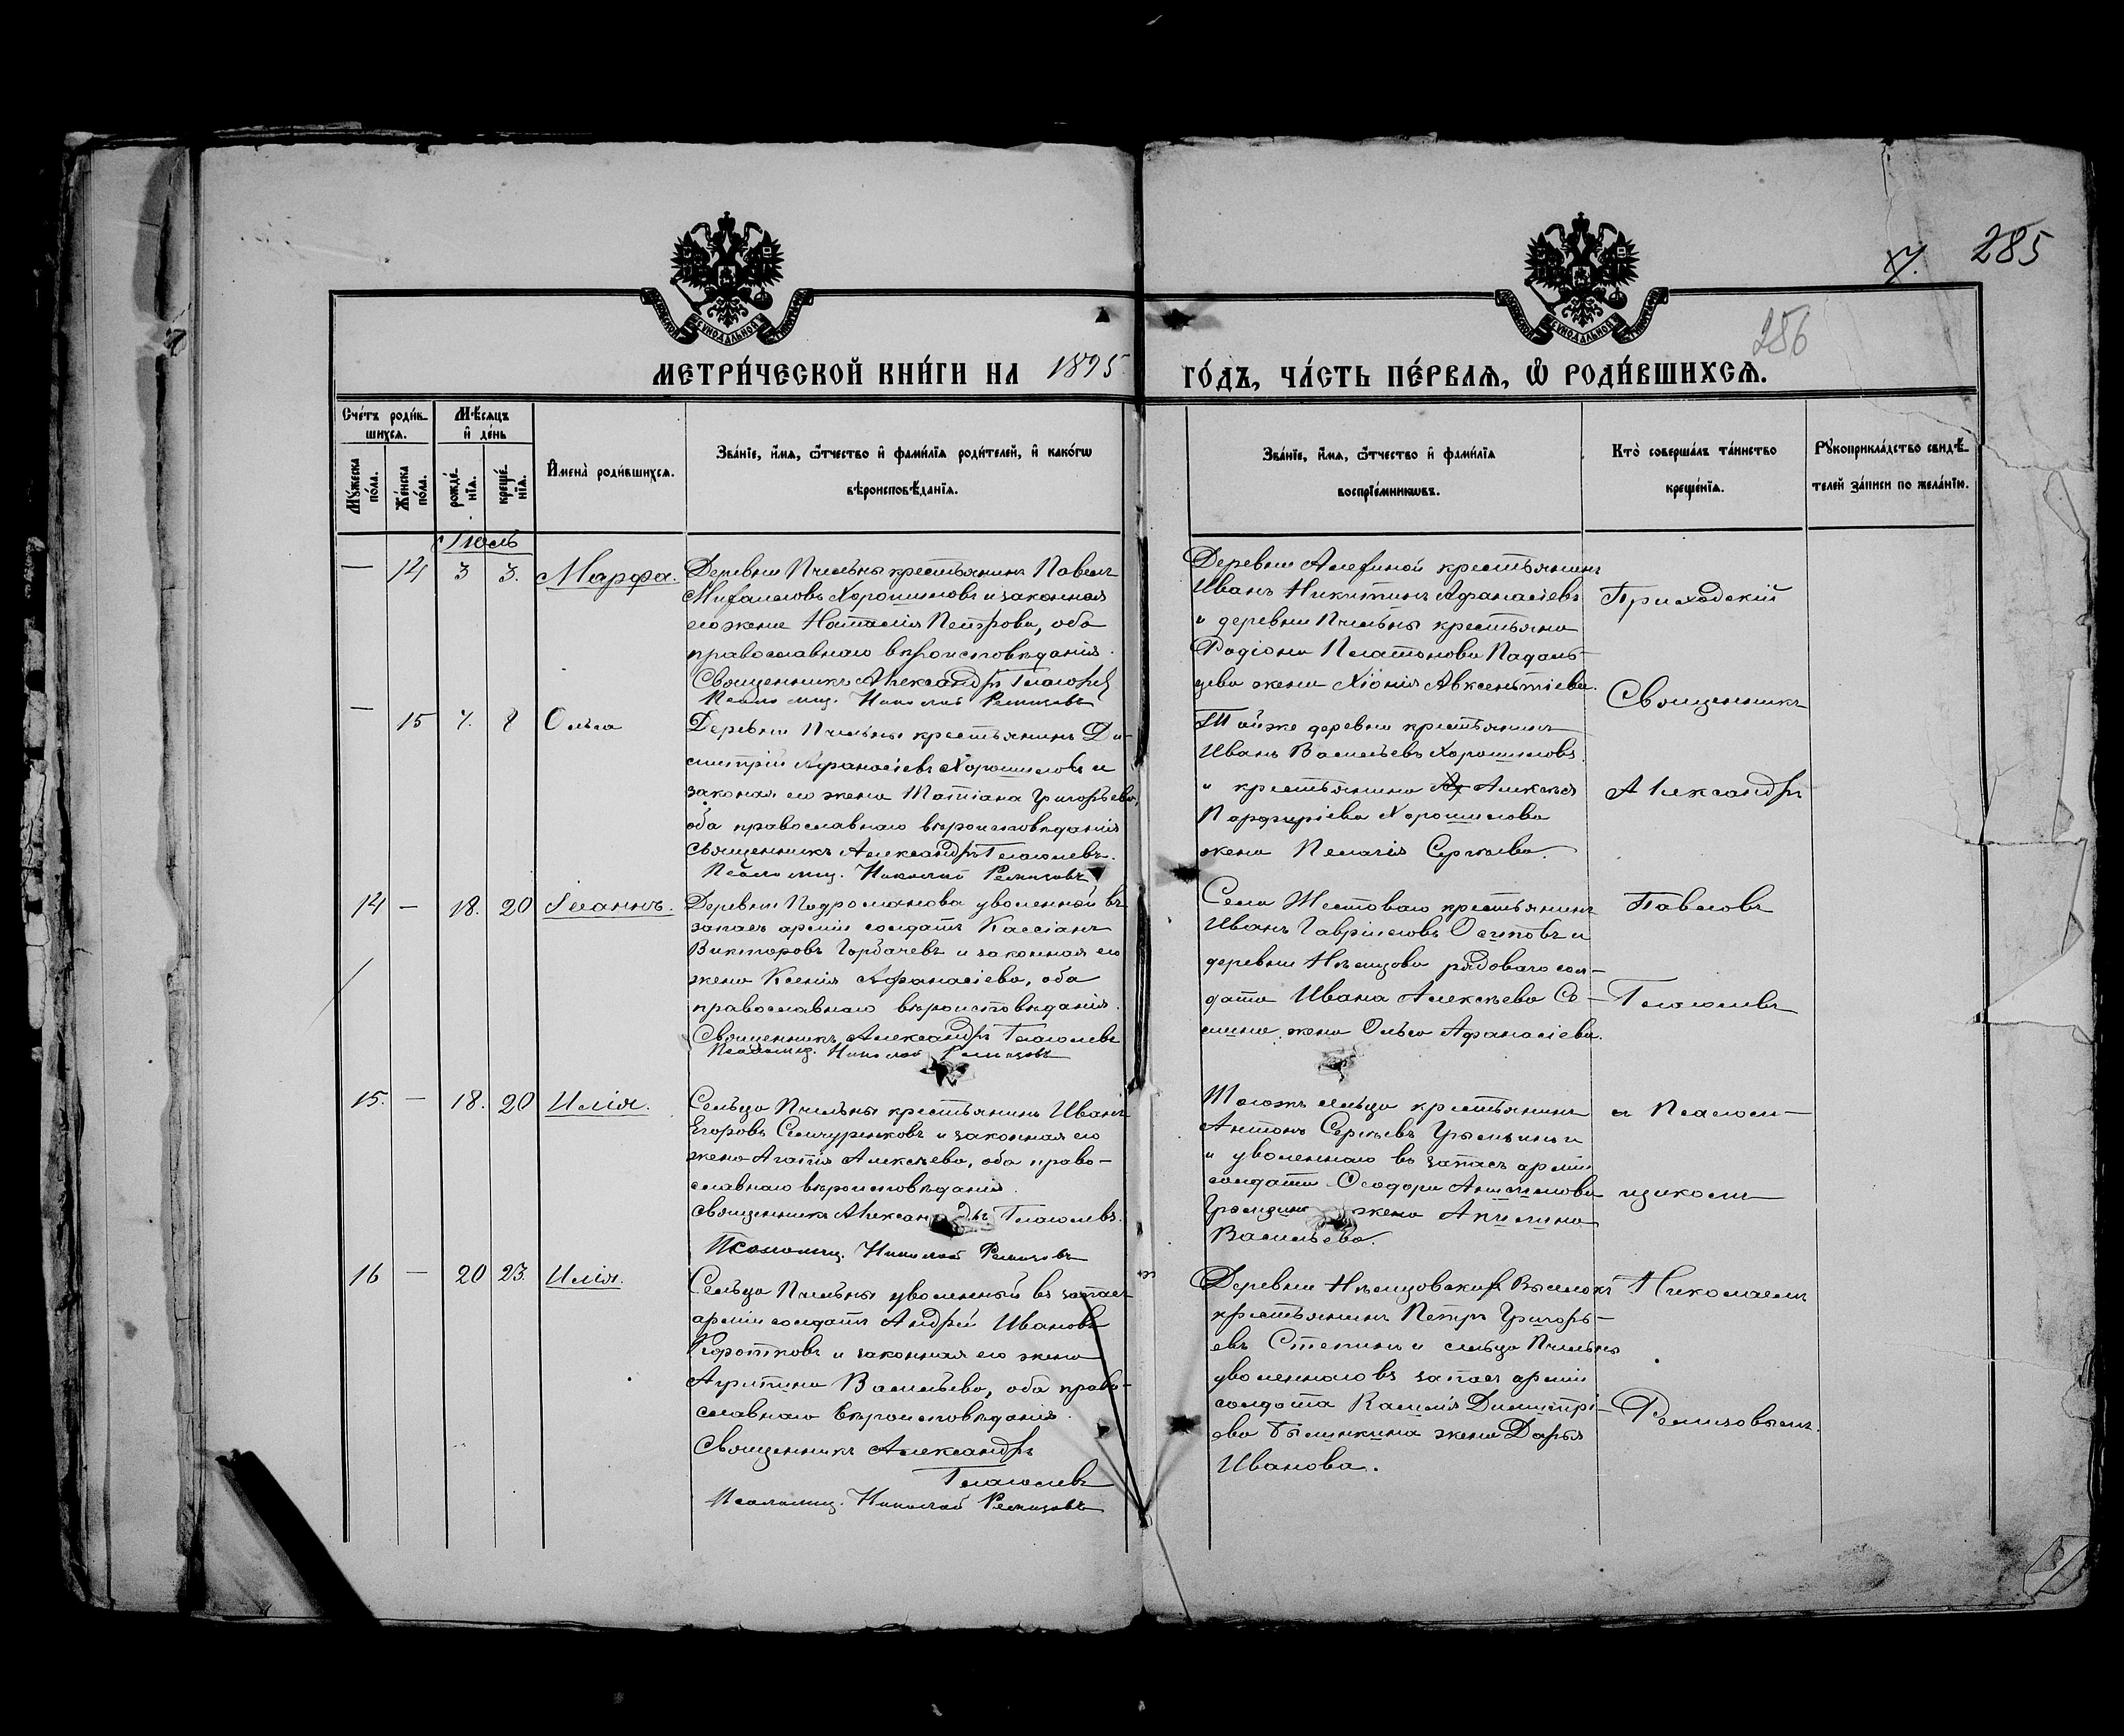 285
7.
286
МЕТРИ́ЧЕСКОЙ КНИ́ГИ НА 1895
ГО́ДЪ, ЧА́СТЬ ПЕ́РВАЯ, Ѡ РОДИ́ВШИХСЯ.
Сче́тъ роди́в-
шихся.
Мѣ́сяцъ
и҆ де́нь
Мꙋ́жеска
по́ла.
Же́нска
по́ла.
рожде́-
нїѧ.
креще́-
нїѧ.
И҆мена̀ роди́вшихся.
Зва́нїе, и҆́мѧ, ѻ҆́тчество и҆ фами́лїѧ роди́телей, и҆ како́гѡ
вѣроисповѣ́данїѧ.
Зва́нїе, и҆́мѧ, ѻ҆́тчество и҆ фами́лїѧ
воспрїе́мникѡвъ.
Кто̀ соверша́лъ та́инство
креще́нїѧ.
Рꙋкоприкла́дство свидѣ́-
телей за́писи по жела́нїю.
Іюль
— 14 3 3. Марфа.
Деревни Пчельны крестьянинъ Павелъ
Михаиловъ Хорошиловъ и законная
его жена Наталія Петрова, оба
православнаго вѣроисповѣданія.
Священникъ Александръ Глаголевъ
Псаломщ. Николай Ремизовъ
Иванъ Никитинъ Афанасіевъ
и деревни Пчельны крестьянина
Родіона Платонова
жена Хіонія Авксентіева.
— 15 7. 8 Ольга
Деревни Пчельны крестьянинъ Ди-
митрій Афанасіевъ Хорошиловъ и
законая его жена Татіана Григорьева,
оба православнаго вѣроисповѣданія
Священникъ Александръ Глаголевъ.
Псаломщ. Николай Ремизовъ
Той же деревни крестьянинъ
Иванъ Васильевъ Хорошиловъ
и крестьянина Алексѣя
Порфиріева Хорошилова
жена Пелагія Сергѣева.
14 — 18. 20 Іоаннъ.
Деревни Подроманова уволенный въ
запасъ арміи солдатъ Кассіанъ
Викторовъ Горбачевъ и законная его
жена Ксенія Афанасіева, оба
православнаго вѣроисповѣданія.
Священникъ Александръ Глаголевъ
Псаломщ. Николай Ремизовъ
Села Шестоваго крестьянинъ
Иванъ Гавриловъ Осиповъ и
деревни Нѣмцова рядоваго сол-
дата Ивана Алексѣева Се-
мина жена Ольга Афанасіева.
15. — 18. 20 Илія.
Сельца Пчельны крестьянинъ Иванъ
Егоровъ и законная его
жена Агапія Алексѣева, оба право-
славнаго вѣроисповѣданія.
Священникъ Александръ Глаголевъ.
Псаломщ. Николай Ремизовъ
Тогожъ сельца крестьянинъ
Антонъ Сергѣевъ
и уволеннаго въ запасъ арміи
солдата Ѳеодора
жена Акилина
Васильева.
16 — 20 23. Илія.
Сельца Пчельны уволенный въ запасъ
арміи солдатъ Андрей Ивановъ
Коротковъ и законная его жена
Агрипина Васильева, оба право-
славнаго вѣроисповѣданія.
Священникъ Александръ
Глаголевъ
Псаломщ. Николай Ремизовъ
крестьянинъ Петръ Григорь-
евъ Степинъ и сельца Пчельны
уволеннаго въ запасъ арміи
солдата Димитрі-
ева жена Дарья
Иванова.
Приходскій
Священникъ
Александръ
Павловъ
Глаголевъ
и Псалом-
щикомъ
Николаемъ
Ремизовымъ.